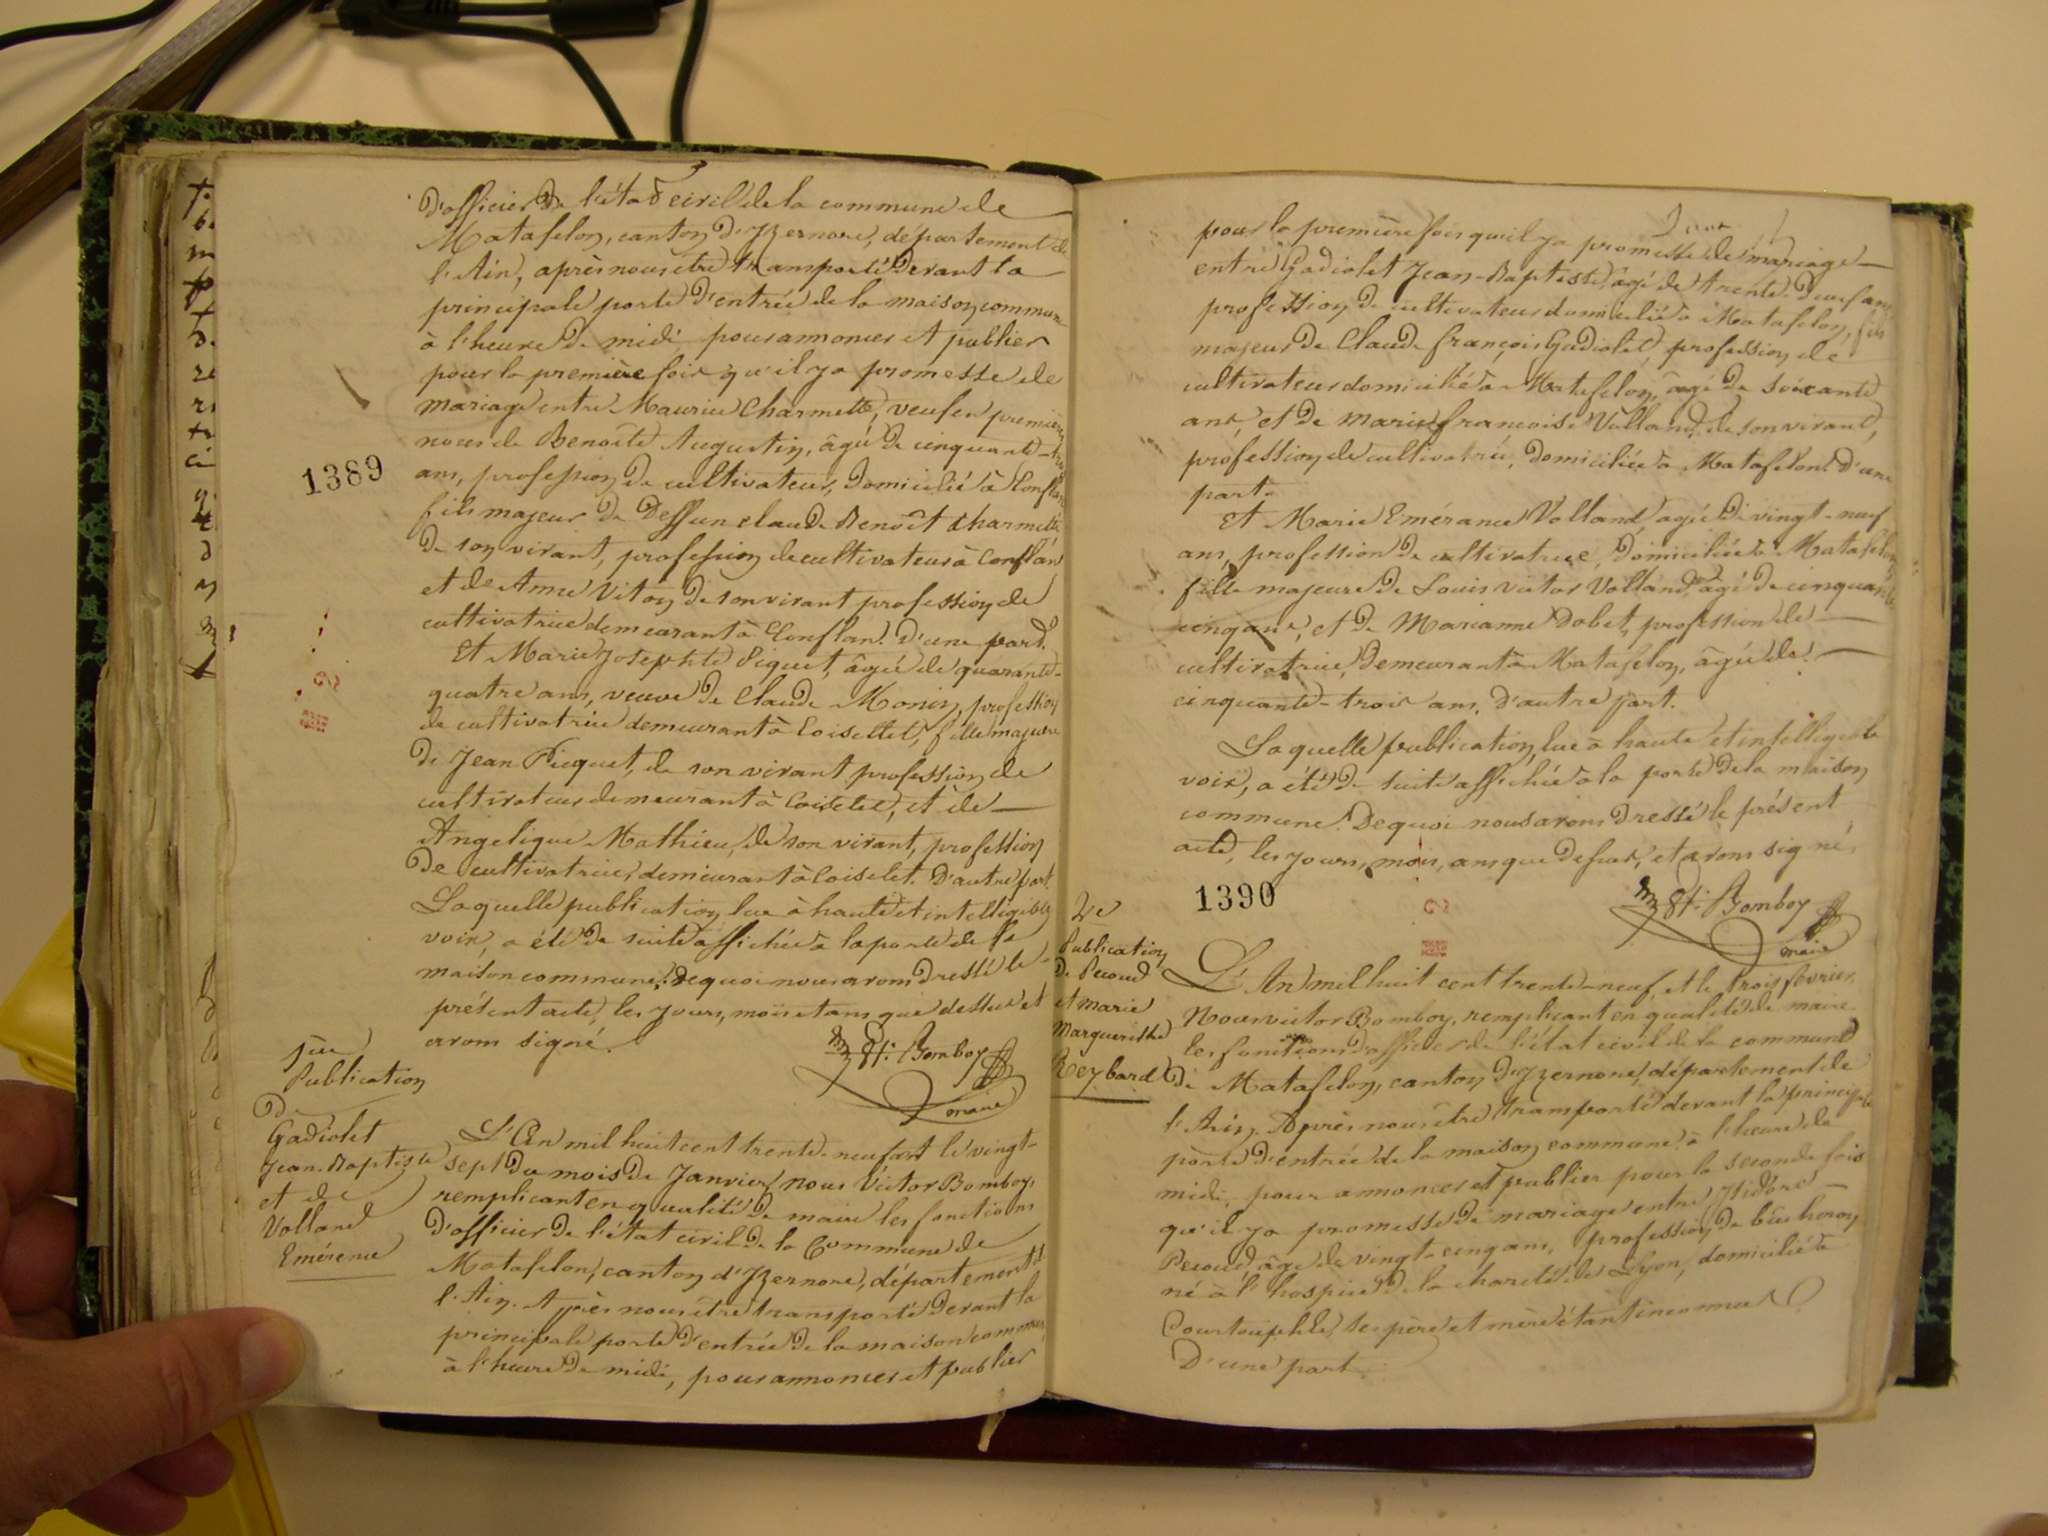 d'officier de l'état civil de la commune de
Matafelon, canton d'Izernore, département de
l'Ain, après nous être transporté devant la
principale porte d'entrée de la maison commune
à l'heure de midi pour annoncer et publier
pour la première fois qu'il y a promesse de
mariage entre Maurice Charmette, veuf en première
nous de Benoite Augustin, âgé de cinquante-
ans, profession de cultivateur, domicilié à Conflan
1389
fils majeur de Deffun Claude Benoît Charmette
de son vivant, profession de cultivateur à Conflan
et de Anne Viton de son vivant profession de
cultivatrice demeurant à Conflan. D'une part.
Et Marie Josephte Piquet, âgée de quarante-
quatre ans, veuve de Claude Monin, profession
de cultivatrice demeurant à Coisellet, fille majeure
de Jean Picquet, de son vivant profession de
cultivateur demeurant à Coiselet, et de
Angelique Mathieu, de son vivant, profession
de cultivatrice demeurant à Coiselet. D'autre part.
Laquelle publication lue à haute et intelligible
voix, a été de suite affichée à la porte de la
maison commune. De quoi nous avons dressé le
présent acte, les jours, mois et ans que dessus et
avons signé.
Bomboy
maire
1ère
Publication
De
Gadiolet
Jean-Baptiste
et de
Volland
Emérence
L'An mil huit cent trente-neuf et le vingt-
sept du mois de Janvier, nous Victor Bomboy,
remplicant en qualité de maire les fonctions
d'officier de l'état civil de la Commune de
Matafelon, canton d'Izernore, département de
l'Ain. Après nous être transporté devant la
principale porte d'entrée de la maison commune
à l'heure de midi, pour annoncer et publier
pour la première fois qu'il y a promesse de mariage
entre Gadiolet Jean-Baptiste, âgé de trente-deux ans,
profession de cultivateur domicilié à Matafelon, fils
majeur de Claude françois Gadiolet, profession de
cultivateur domicilié à Matafelon, âgé de soixante
ans, et de Marie francoise Volland, de son vivant,
profession de cultivatrice, domiciliée à Matafelon. D'une
part.
Et Marie Emérance Volland âgée de vingt-neuf
ans, profession de cultivatrice, domiciliée à Matafelon
fille majeure de Louis Victor Volland, âgé de cinquante
cinq ans, et de Marianne Dobet, profession de
cultivatrice, demeurant à Matafelon, âgée de
cinquante-trois ans. D'autre part.
Laquelle publication, lue à haute et intelligible
voix, a été de suite affichée à la porte de la maison
commune. De quoi nous avons dressé le présent
acte, les jours, mois, ans que dessus, et avons signé,
1390
Bomboy
maire
2e
Publication
De Pecoud
et marie
Marguerithe
Reybard
L'An mil huit cent trente-neuf, et le trois fevrier,
Nous victor Bomboy, remplicant en qualité de maire
les fonctions d'officier de l'état civil de la commune
de Matafelon, canton d'Izernore, département de
l'Ain. Après nous être transporté devant la principale
porte d'entrée de la maison commune à l'heure de
midi, pour annoncer et publier pour la seconde fois
qu'il y a promesse de mariage entre Isidore
Pecoud, âgé de vingt-cinq ans, profession de bûcheron
né à l'hospice de la charité de Lyon, domicilié à
Courtouphle, ses père et mère étant inconnus
D'une part.